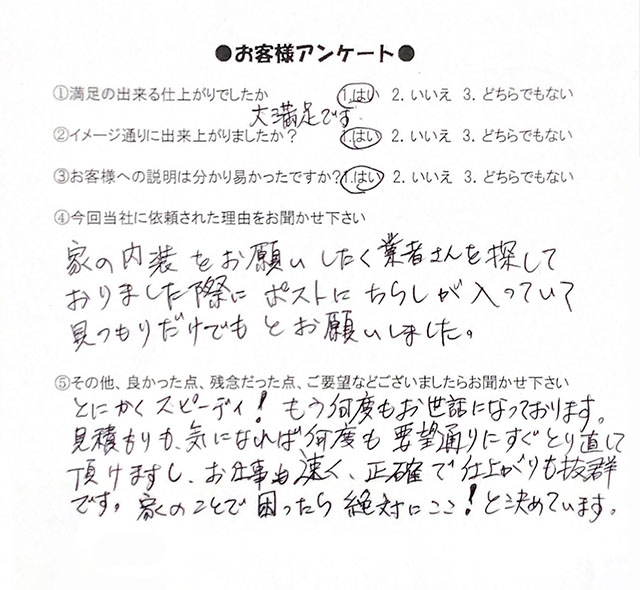 ●お客様アンケート●
①満足の出来る仕上がりでしたか 1.はい 2.いいえ 3.どちらでもない
大満足です
②イメージ通りに出来上がりましたか? 1.はい 2.いいえ 3.どちらでもない
③お客様への説明は分かり易かったですか?1.はい 2.いいえ 3.どちらでもない
④今回当社に依頼された理由をお聞かせ下さい
家の内装をお願いしたく業者さんを探して
おりました際にポストにちらしが入っていて
見つもりだけでもとお願いしました。
⑤その他、良かった点、残念だった点、ご要望などございましたらお聞かせ下さい
とにかくスピーディ!もう何度もお世話になっております。
見積もりも、気になれば何度も要望通りにすぐとり直して
頂けますし、お仕事も速く、正確で仕上がりも抜群
です。家のことで困ったら絶対にここ!と決めています。